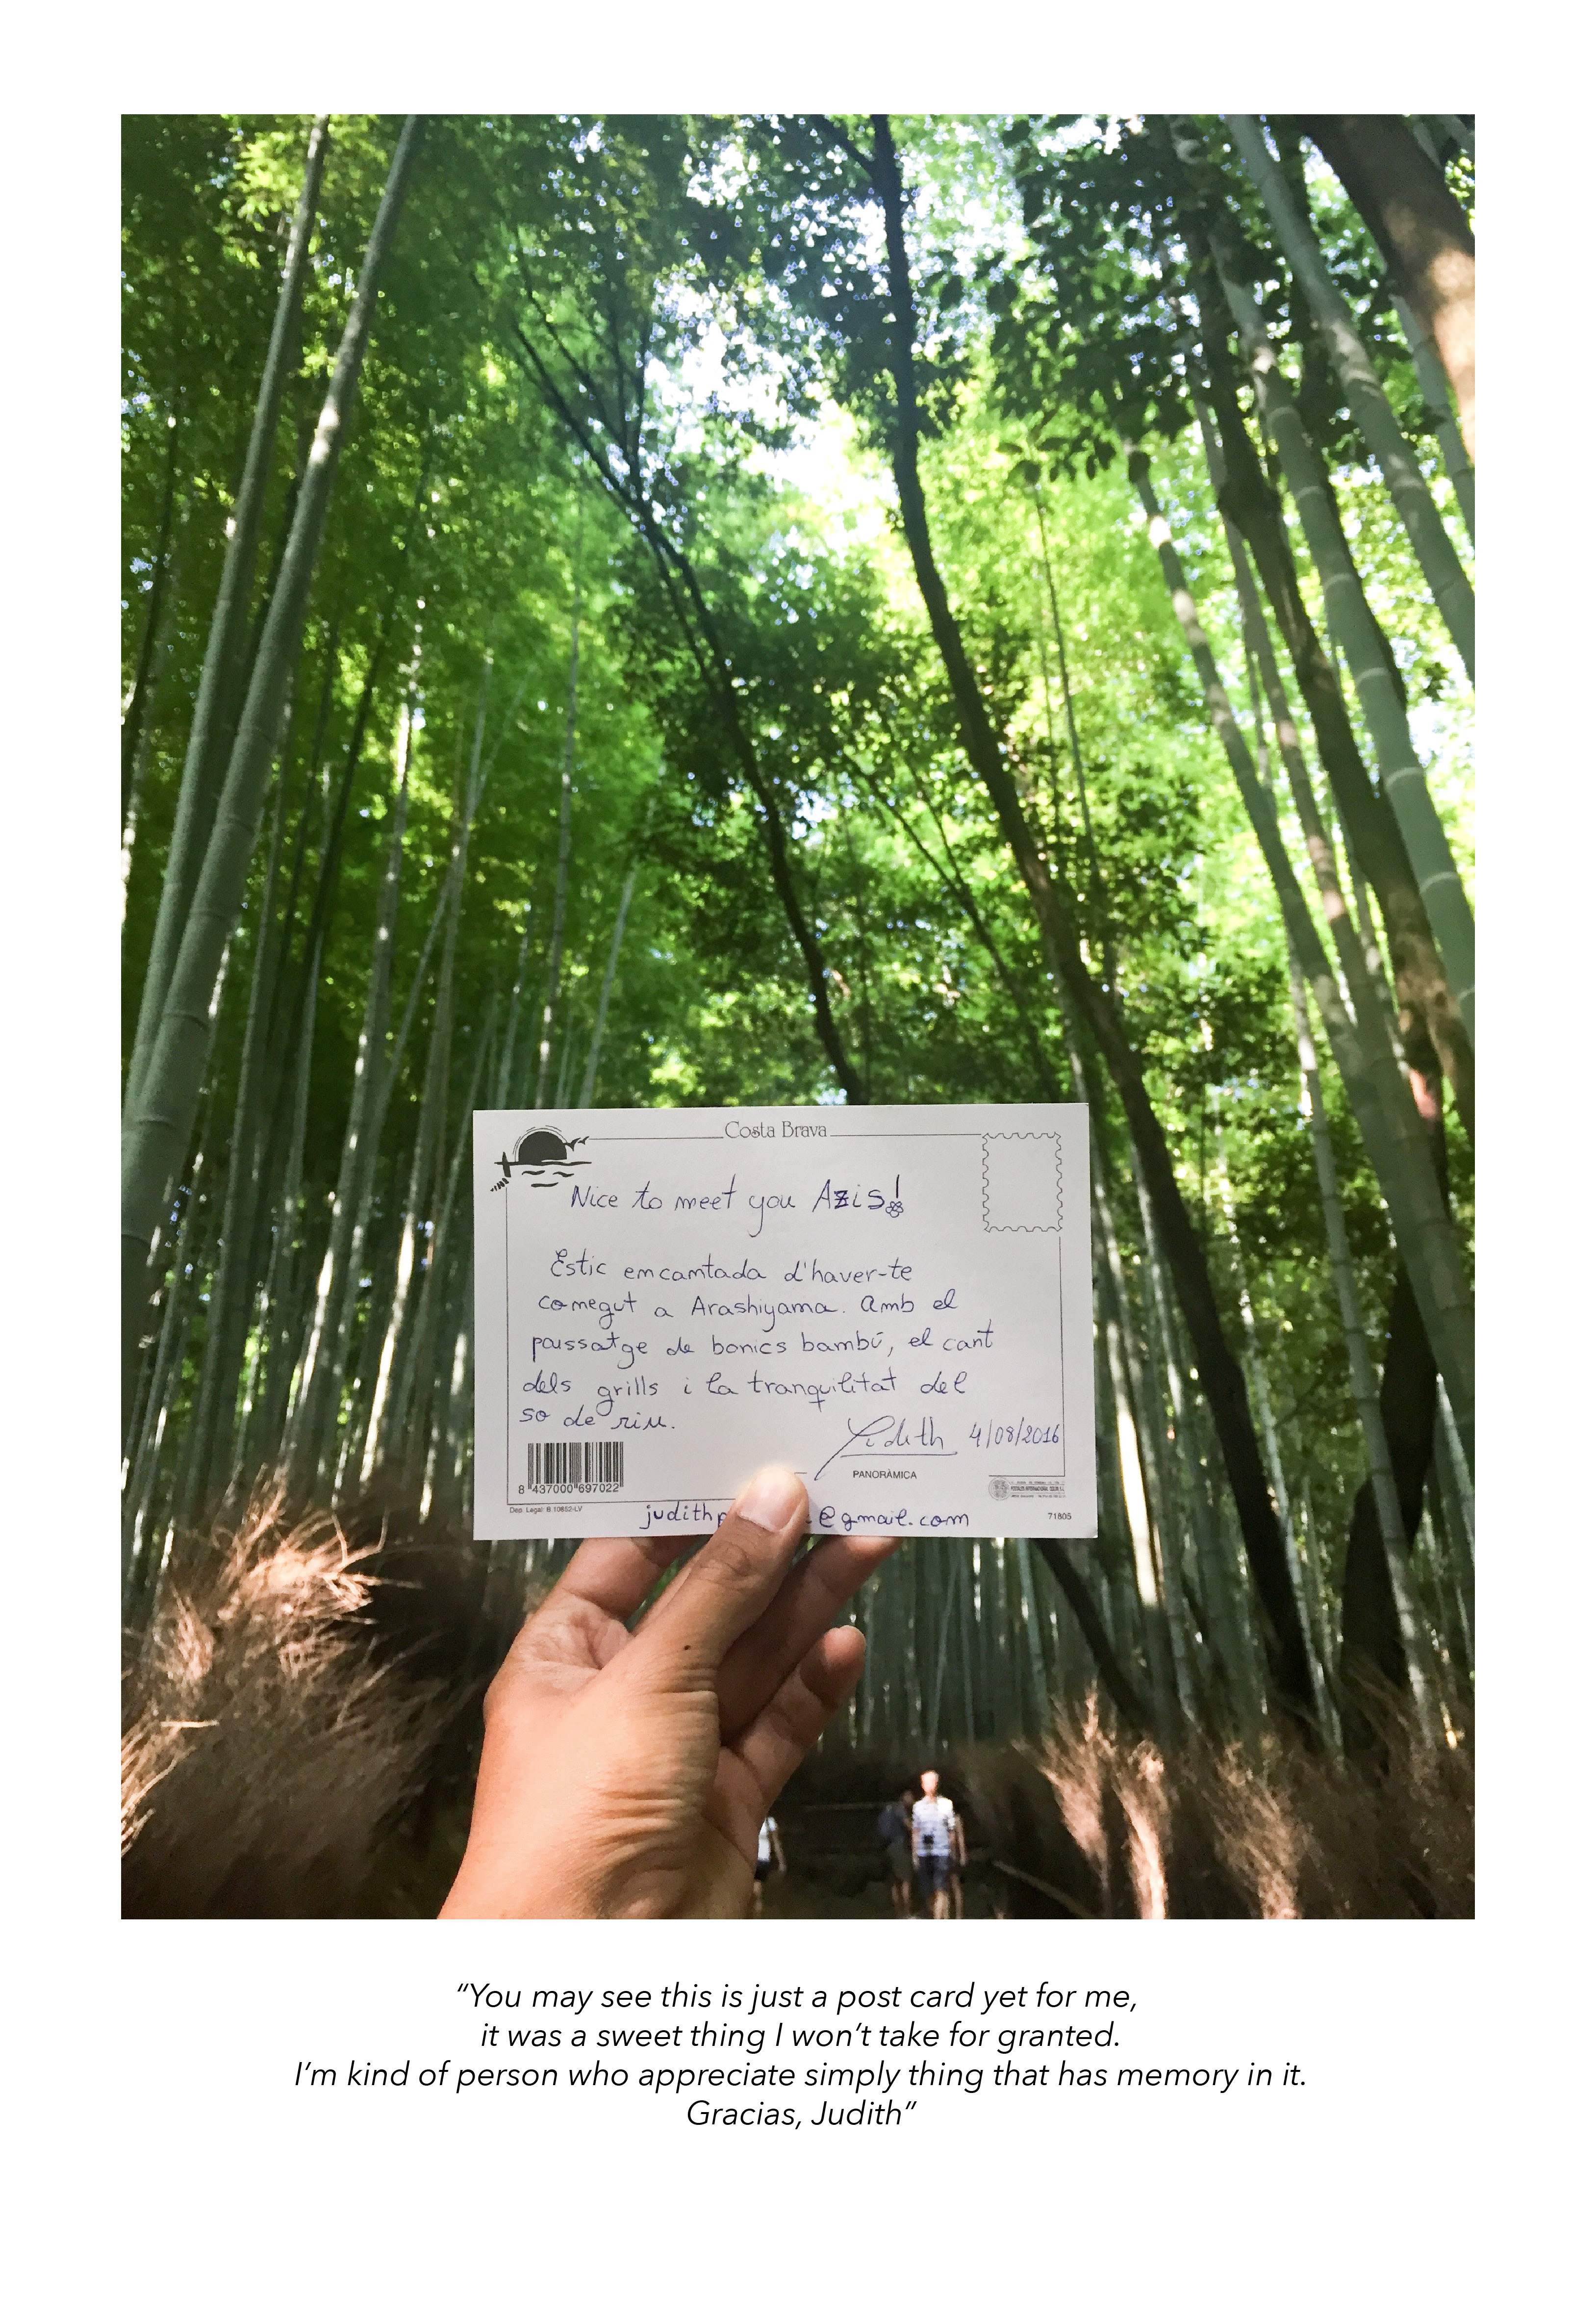 Costa Brava
Nice to meet you Azis!
Estic encantada d'haver-te
conegut a Arashiyama. Amb el
paissatge de bonics bambú, el cant
dels grills i la tranquilitat del
so de riu.
Judith 4/08/2016
PANORÀMICA
8 437000 697022
Dep. Legal: B.10852-LV
judithp @gmail.com
71805
“You may see this is just a post card yet for me,
it was a sweet thing I won’t take for granted.
I’m kind of person who appreciate simply thing that has memory in it.
Gracias, Judith”